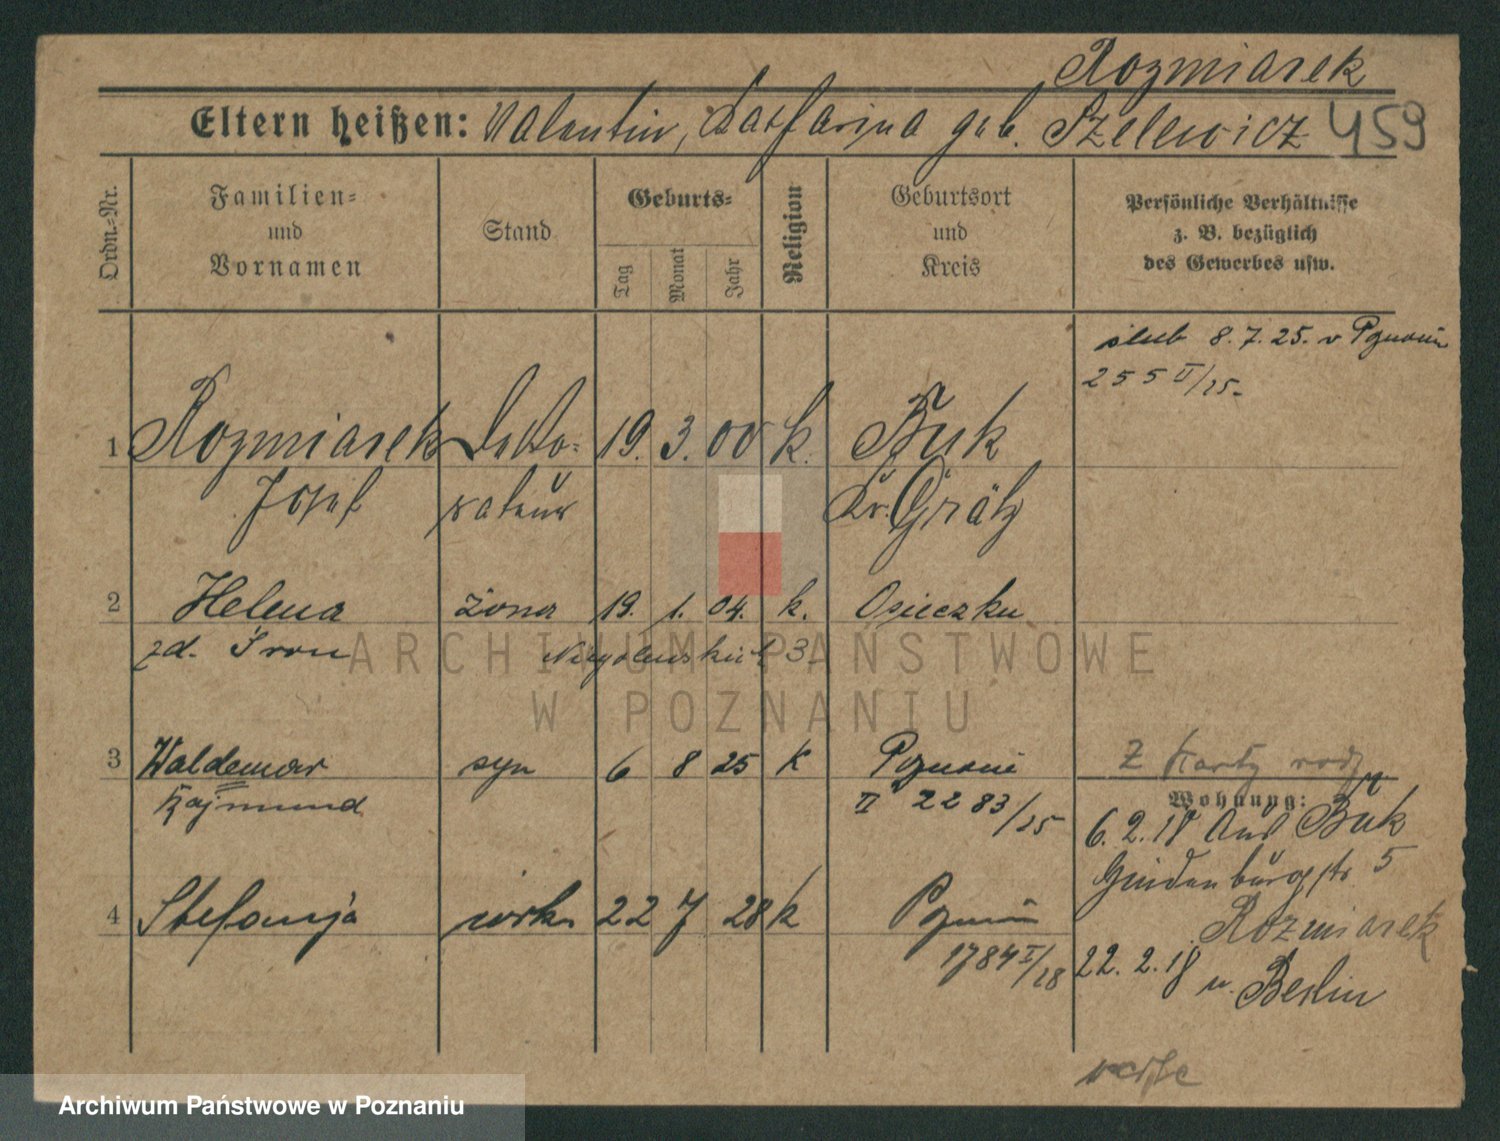 Rozmiarek
Eltern heißen: Valentin, Katharina geb. Szelewicz 459
Ordn.-Nr.
Familien-
und
Vornamen
Stand
Geburts-
Tag
Monat
Jahr
Religion
Geburtsort
und
Kreis
Persönliche Verhältnisse
z. B. bezüglich
des Gewerbes usw.
ślub 8.7.25. w Poznaniu
255 II/25.
1 Rozmiarek Deko- 19. 3. 00 k. Buk
Josef rateur Kr. Grätz
2 Helena żona 19. 1. 04. k. Osieczku
zd. 3
ARCHIWUM PAŃSTWOWE
W POZNANIU
3 Waldemar syn 6 8 25 k Poznań
Rajmund II 2283/25
Z karty rodz
Wohnung:
6.2.18 aus Buk
Hindenburgstr. 5
Rozmiarek
4 Stefanja córka 22 7 28 k Poznań
1784 I/28
22.2.18 n. Berlin
Archiwum Państwowe w Poznaniu